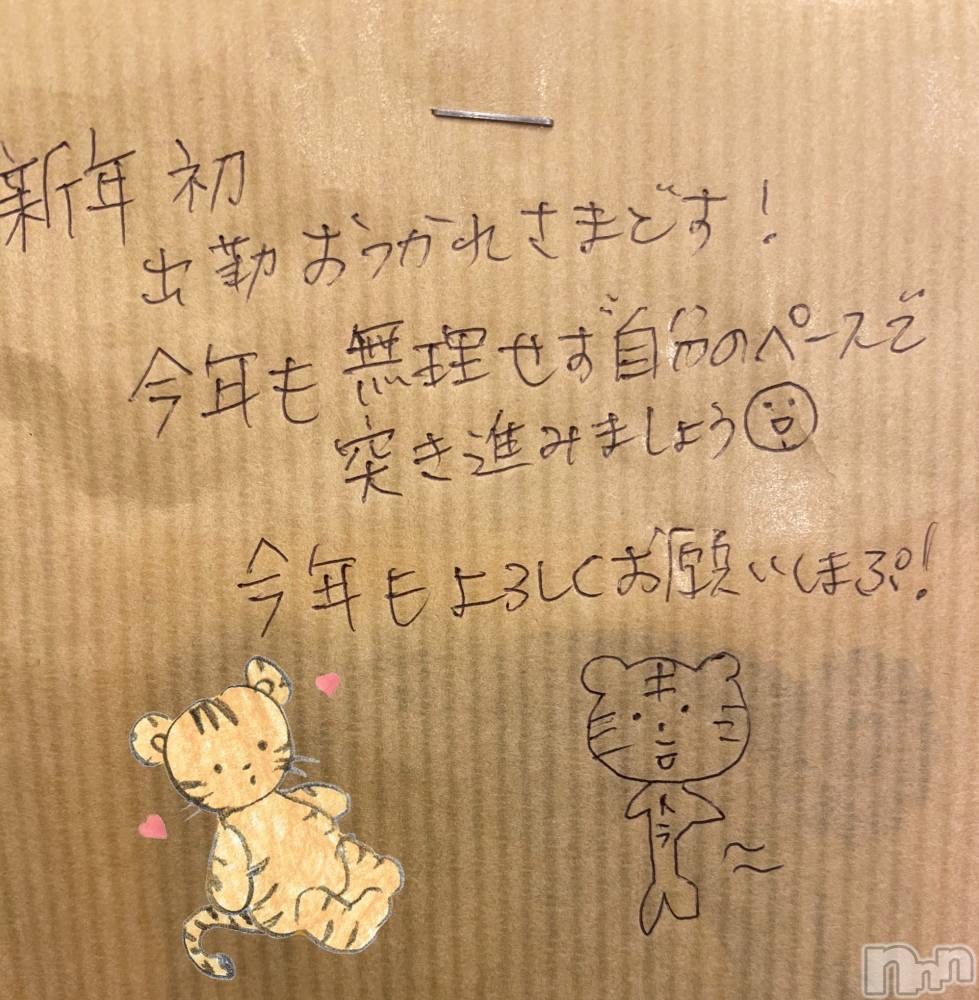 新年 初
出勤 おつかれさまです!
今年も 無理せず自分のペースで
突き進みましょう
今年もよろしくお願いしまぷ!
トラ
nnn